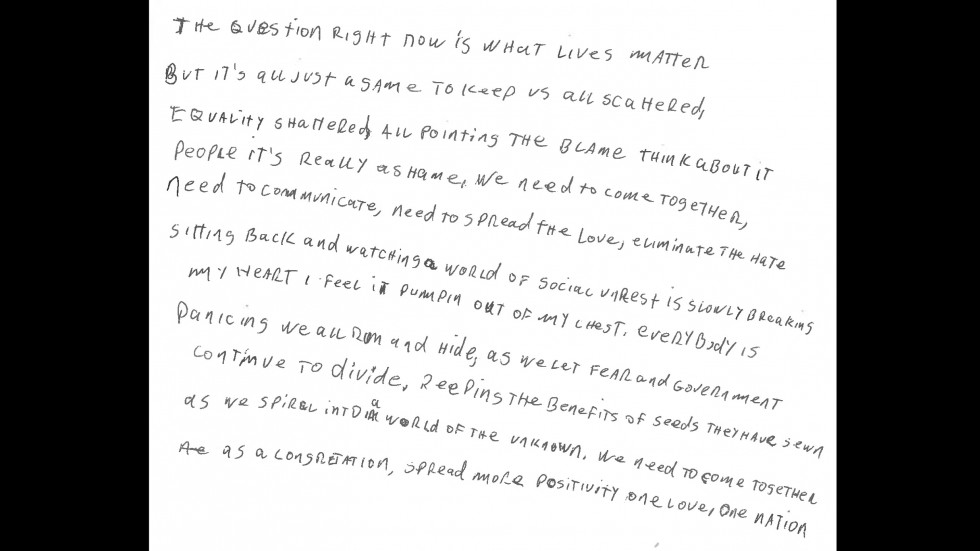 THE QUESTION RIGHT NOW is WHAT LIVES MATTER
BUT IT'S all JUST a GAME TO Keep US all SCATTERED,
EQUALITY SHATTERED, ALL POINTING THE BLAME THINK ABOUT IT
PEOPLE iT'S REALLY a SHAME, WE need to come TOGETHER,
need to communicate, need to SPREAD THE LOVE, ELIMINATE THE HATE
SITTING BACK and WATCHING a WORLD OF SOCIAL UNREST is SLOWLY BREAKING
MY HEART I FEEL iT PUMPIN OUT OF MY CHEST. EVERYBODY IS
PANICING WE ALL RUN and HIDE, as WE LET FEAR and GOVERNMENT
CONTINUE TO diVIDE, REEPING THE BENEFITS OF SEEDS THEY HAVE SEWN
as WE SPIREL INTO a WORLD OF THE UNKNOWN. We need TO COME TOGETHER
as a CONGRETATION, SPREAD MORE POSITIVITY ONE LOVE, ONE NATION